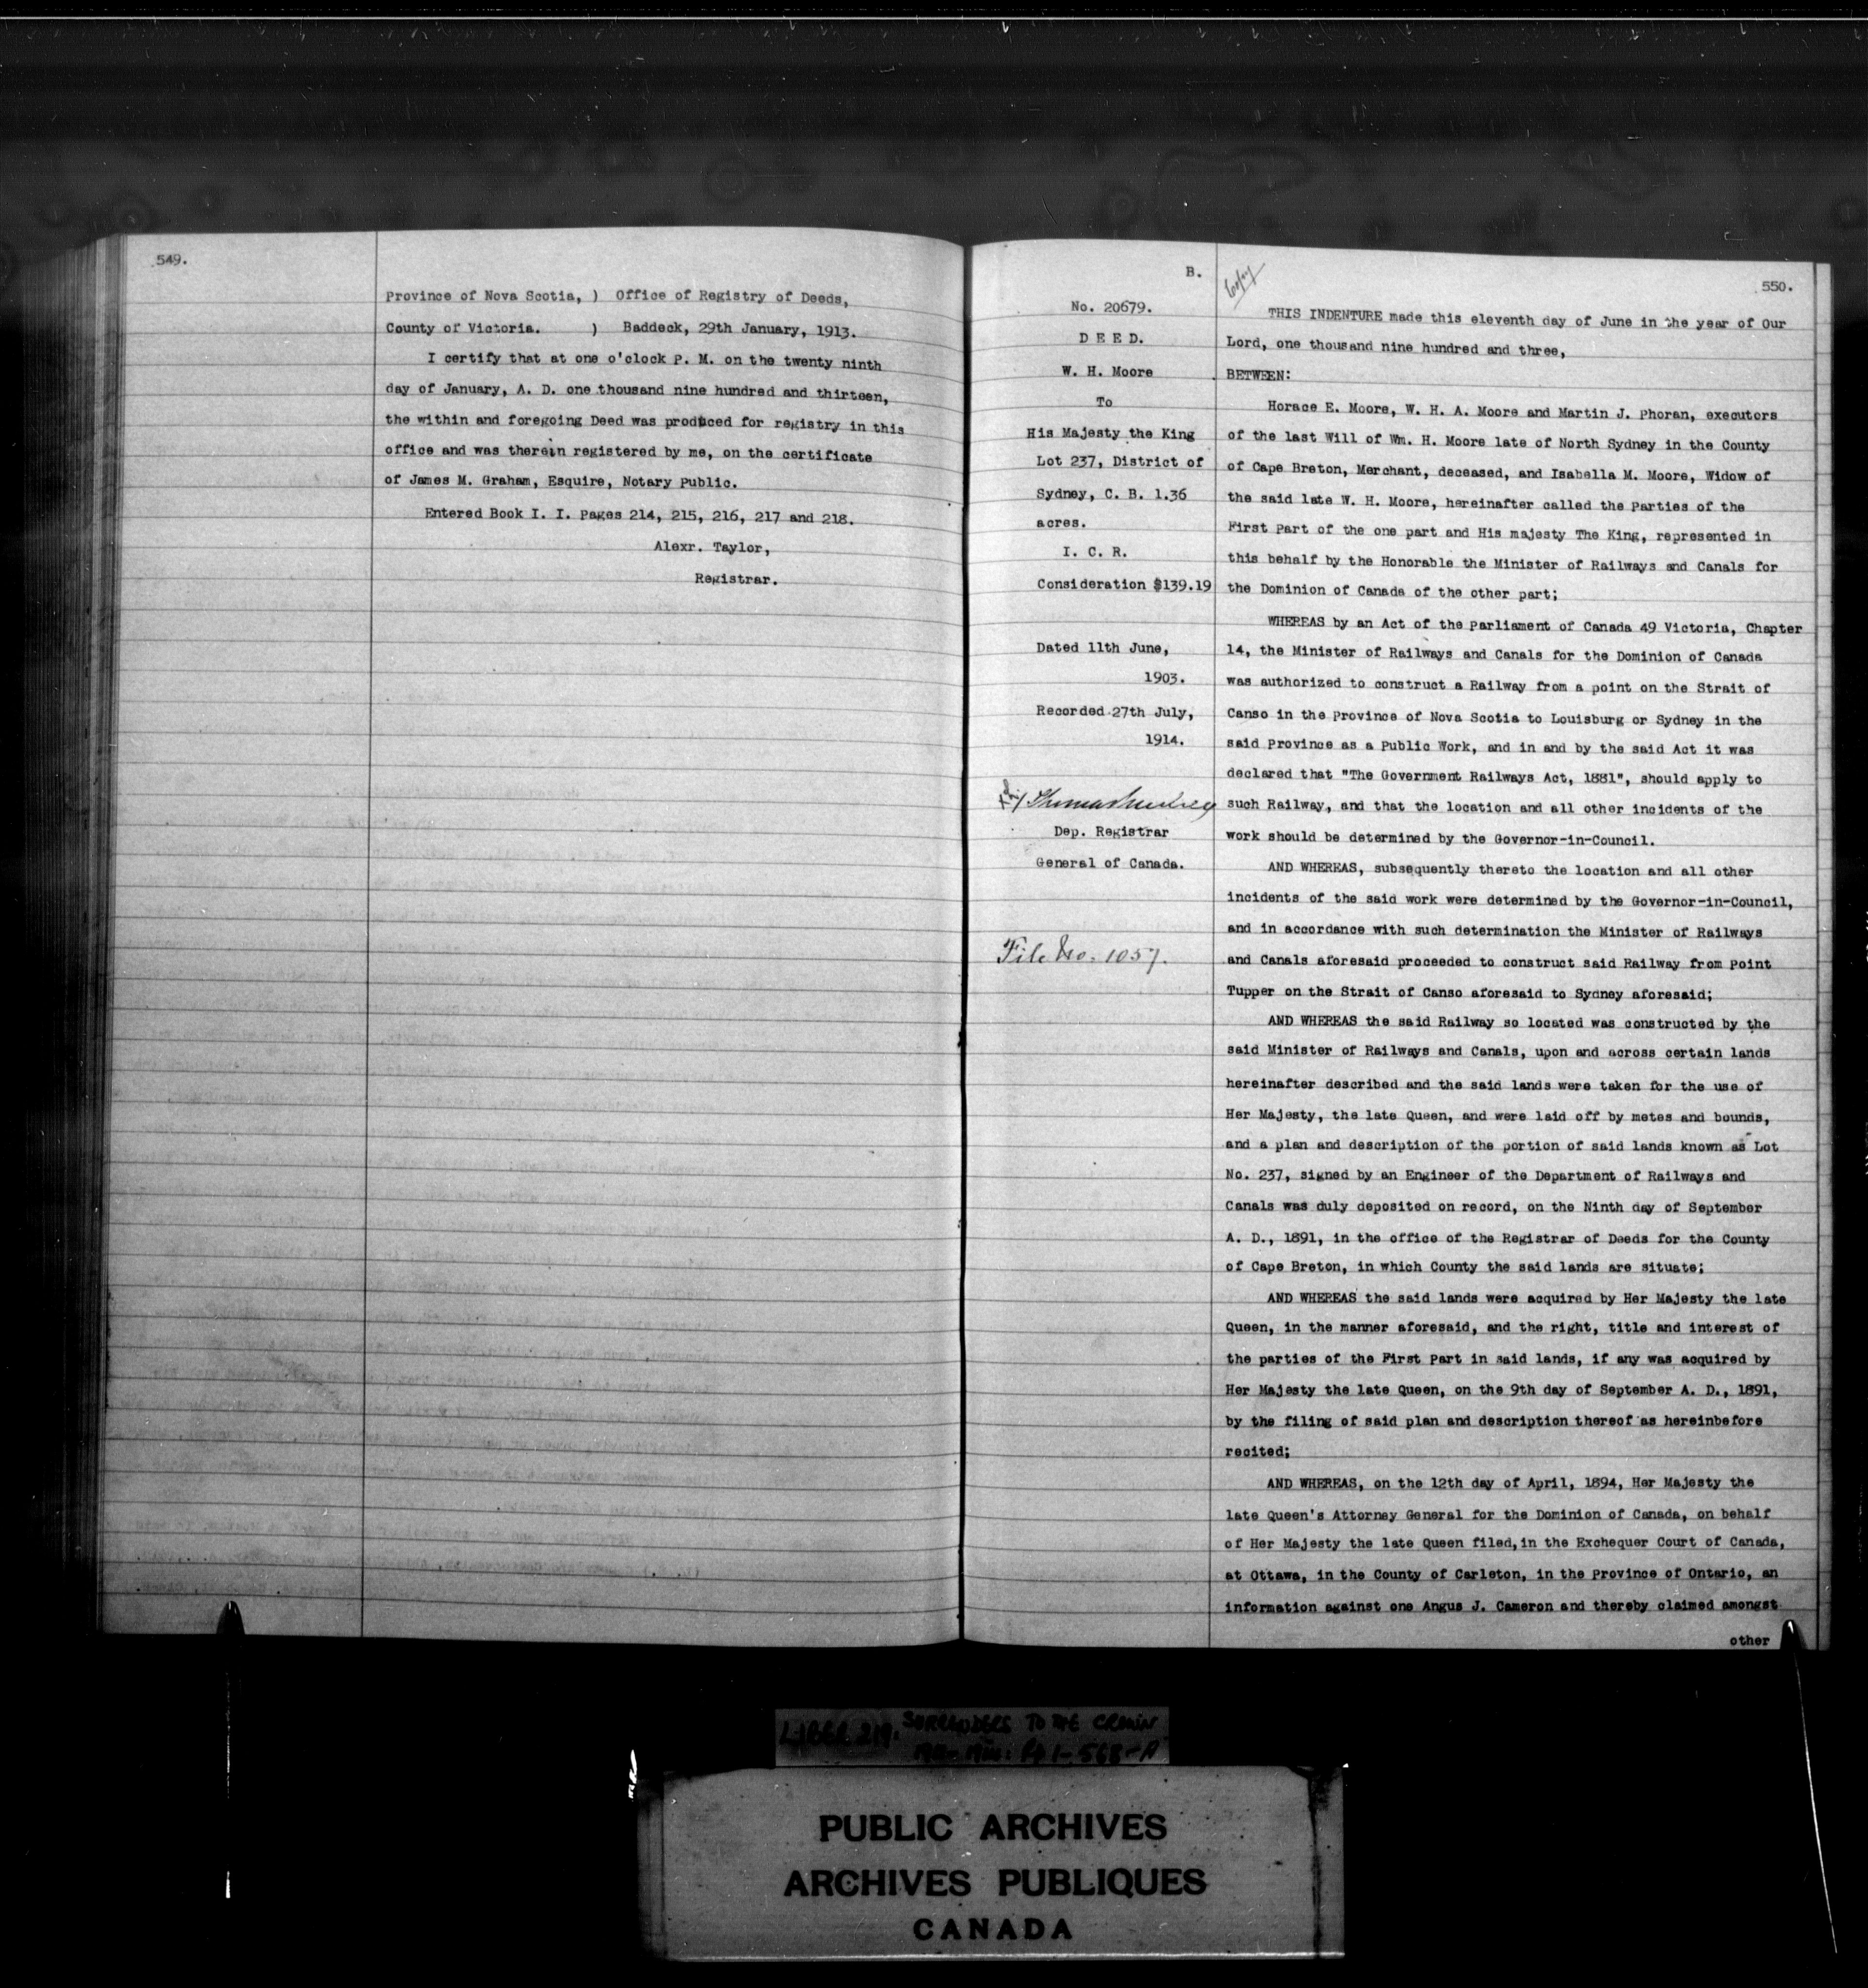 549.
Province of Nova Scotia, ) Office of Registry of Deeds,
County of Victoria. ) Baddeck, 29th January, 1913.
I certify that at one o'clock P. M. on the twenty ninth
day of January, A. D. one thousand nine hundred and thirteen,
the within and foregoing Deed was produced for registry in this
office and was therein registered by me, on the certificate
of James M. Graham, Esquire, Notary Public.
Entered Book I. I. Pages 214, 215, 216, 217 and 218.
Alexr. Taylor,
Registrar.
B.
No. 20679.
D E E D.
W. H. Moore
To
His Majesty the King
Lot 237, District of
Sydney, C. B. 1.36
acres.
I. C. R.
Consideration $139.19
Dated 11th June,
1903.
Recorded 27th July,
1914.
Dep. Registrar
General of Canada.
File No. 1057.
Copy
550.
THIS INDENTURE made this eleventh day of June in the year of Our
Lord, one thousand nine hundred and three,
BETWEEN:
Horace E. Moore, W. H. A. Moore and Martin J. Phoran, executors
of the last Will of Wm. H. Moore late of North Sydney in the County
of Cape Breton, Merchant, deceased, and Isabella M. Moore, Widow of
the said late W. H. Moore, hereinafter called the Parties of the
First Part of the one part and His majesty The King, represented in
this behalf by the Honorable the Minister of Railways and Canals for
the Dominion of Canada of the other part;
WHEREAS by an Act of the Parliament of Canada 49 Victoria, Chapter
14, the Minister of Railways and Canals for the Dominion of Canada
was authorized to construct a Railway from a point on the Strait of
Canso in the Province of Nova Scotia to Louisburg or Sydney in the
said Province as a Public Work, and in and by the said Act it was
declared that "The Government Railways Act, 1881", should apply to
such Railway, and that the location and all other incidents of the
work should be determined by the Governor-in-Council.
AND WHEREAS, subsequently thereto the location and all other
incidents of the said work were determined by the Governor-in-Council,
and in accordance with such determination the Minister of Railways
and Canals aforesaid proceeded to construct said Railway from Point
Tupper on the Strait of Canso aforesaid to Sydney aforesaid;
AND WHEREAS the said Railway so located was constructed by the
said Minister of Railways and Canals, upon and across certain lands
hereinafter described and the said lands were taken for the use of
Her Majesty, the late Queen, and were laid off by metes and bounds,
and a plan and description of the portion of said lands known as Lot
No. 237, signed by an Engineer of the Department of Railways and
Canals was duly deposited on record, on the Ninth day of September
A. D., 1891, in the office of the Registrar of Deeds for the County
of Cape Breton, in which County the said lands are situate;
AND WHEREAS the said lands were acquired by Her Majesty the late
Queen, in the manner aforesaid, and the right, title and interest of
the parties of the First Part in said lands, if any was acquired by
Her Majesty the late Queen, on the 9th day of September A. D., 1891,
by the filing of said plan and description thereof as hereinbefore
recited;
AND WHEREAS, on the 12th day of April, 1894, Her Majesty the
late Queen's Attorney General for the Dominion of Canada, on behalf
of Her Majesty the late Queen filed, in the Exchequer Court of Canada,
at Ottawa, in the County of Carleton, in the Province of Ontario, an
information against one Angus J. Cameron and thereby claimed amongst
other
LIBER 219. SURRENDERS TO THE CROWN
PUBLIC ARCHIVES
ARCHIVES PUBLIQUES
CANADA